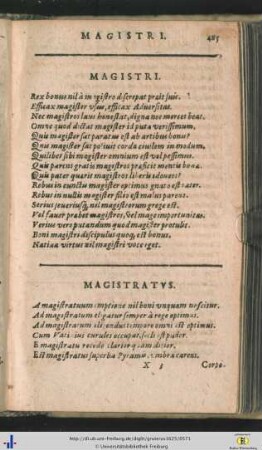 MAGISTRI. 485
MAGISTRI.
Rex bonus nil à magistro discrepat præit suis.
Efficax magister usus, efficax Adversitas.
Nec magistros laus honestat, digna nec merces beat.
Omne quod dictat magister id puta verissimum.
Quis magister sat paratus est ab artibus bonis?
Quis magister sat potivit corda civilem in modum,
Quilibet sibi magister omnium est vel pessimus.
Quis parens gratis magistros præficit mentis bonæ.
Quis pater quærit magistros liberis idoneos?
Rebus in cunctis magister optimus gnato est pater.
Rebus in multis magister filio est malus parens.
Serius severiusq; nil magistrorum grege est.
Vel favor probet magistros, vel mage importunitas.
Verius vero putandum quod magister protulit.
Boni magistri discipulus quoq; est bonus.
Nativa virtus nil magistri voce eget.
MAGISTRATVS.
A magistratuum emptione nil boni unquam nascitur.
Ad magistratum eligatur semper à rege optimus.
Ad magistratum eligendus tempore omni est optimus.
Cum Vatinius curules occupat,
E magistratu recedo clarior quam ditior.
Est magistratus superba Pyramis, umbra carens.
X 3 Corpo-
http://dl.ub.uni-freiburg.de/diglit/gruterus1625/0571
© Universitätsbibliothek Freiburg